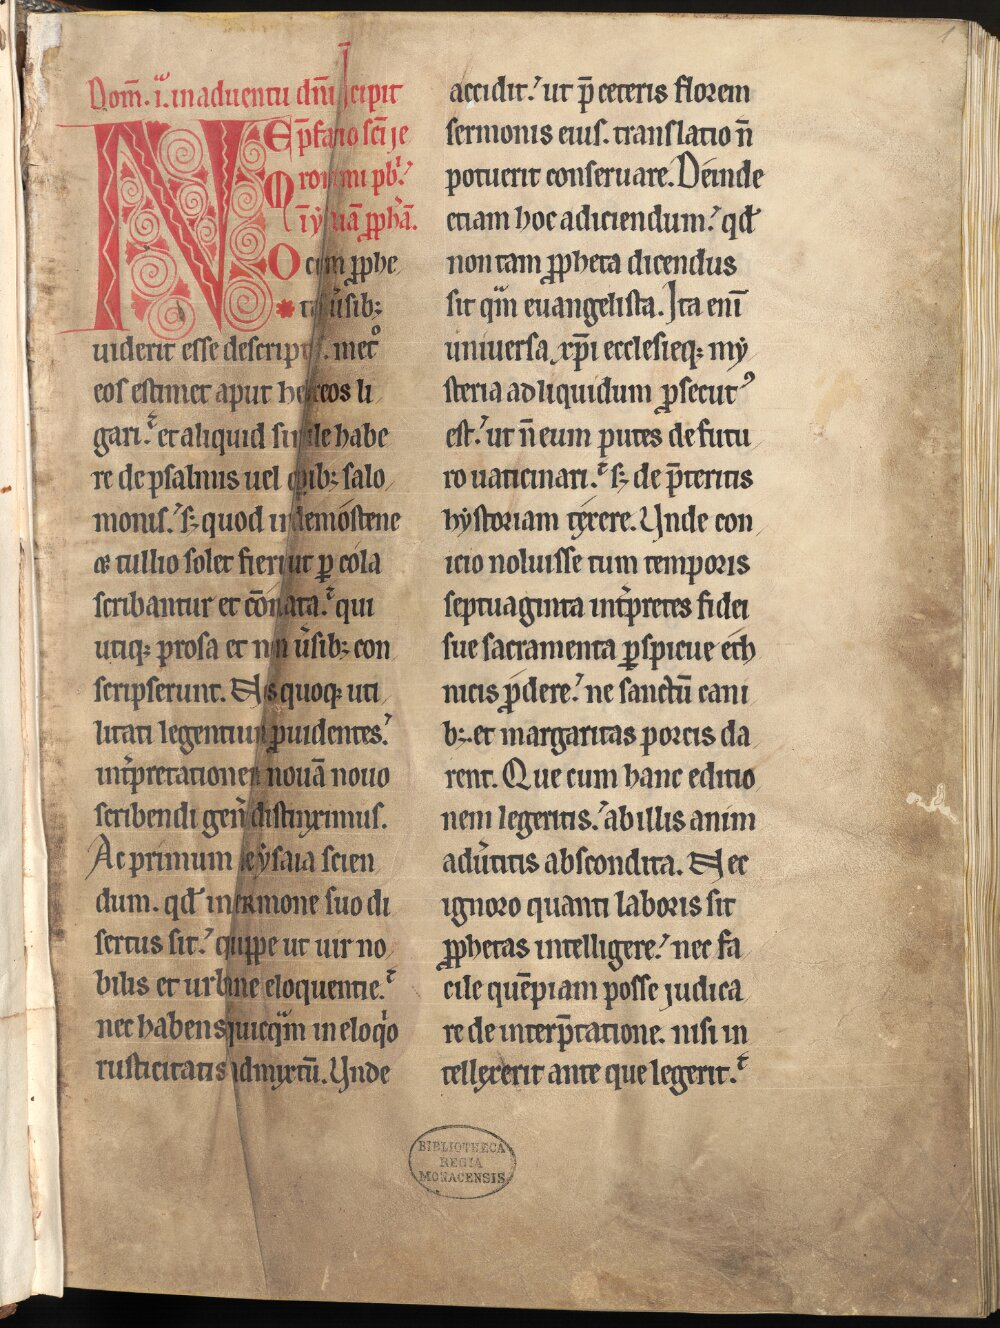 1
Dom̄. i. in aduentu dn̄i Īcipit
p̄fatio sc̄i Je
ronimi pb͛r.
in ysaiā ꝓph̄ā.
NEMO cum ꝓphe
tas u̾sib;
uiderit esse descriptos. metͦ
eos estimet aput hebreos li
gari. et aliquid simile habe
re de psalmis uel opib; salo
monis. s; quod in demostene
⁊ tullio solet fieri ut ꝑ cola
scribantur et cōmata. qui
utiq; prosa et non u̾sib; con
scripserunt. Nos quoq; uti
litati legentium ꝓuidentes.
int̾pretationem nouā nouo
scribendi gen̾e distinximus.
Ac primum de ysaia scien
dum. qd̄ in sermone suo di
sertus sit. quippe ut uir no
bilis et urbane eloquentie.
nec habens quicqͣm in eloqͥo
rusticitatis admixtū. Unde
accidit. ut p̄ ceteris florem
sermonis eius. translatio n̄
potuerit conseruare. Deinde
etiam hoc adiciendum. qd̄
non tam ꝓpheta dicendus
sit qͣm euangelista. Ita enī
uniuersa xp̄i ecclesieq; my
steria ad liquidum ꝑsecutꝰ
est. ut n̄ eum putes de futu
ro uaticinari. s; de p̄teritis
hystoriam texere. Unde con
icio noluisse tum temporis
septuaginta int̾pretes fidei
sue sacramenta ꝑspicue eth
nicis ꝓdere. ne sanctū cani
b; et margaritas porcis da
rent. Que cum hanc editio
nem legeritis. ab illis anim
adu̾titis abscondita. Nec
ignoro quanti laboris sit
ꝓphetas intelligere. nec fa
cile quēpiam posse judica
re de interp̄tatione. nisi in
tellexerit ante que legerit.
BIBLIOTHECA
REGIA
MONACENSIS